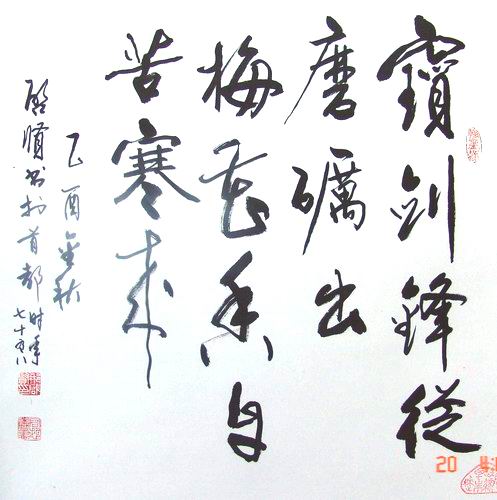 寶劍鋒從
磨礪出
梅花香自
苦寒來
乙酉金秋
书於首都时年
七十有八
20